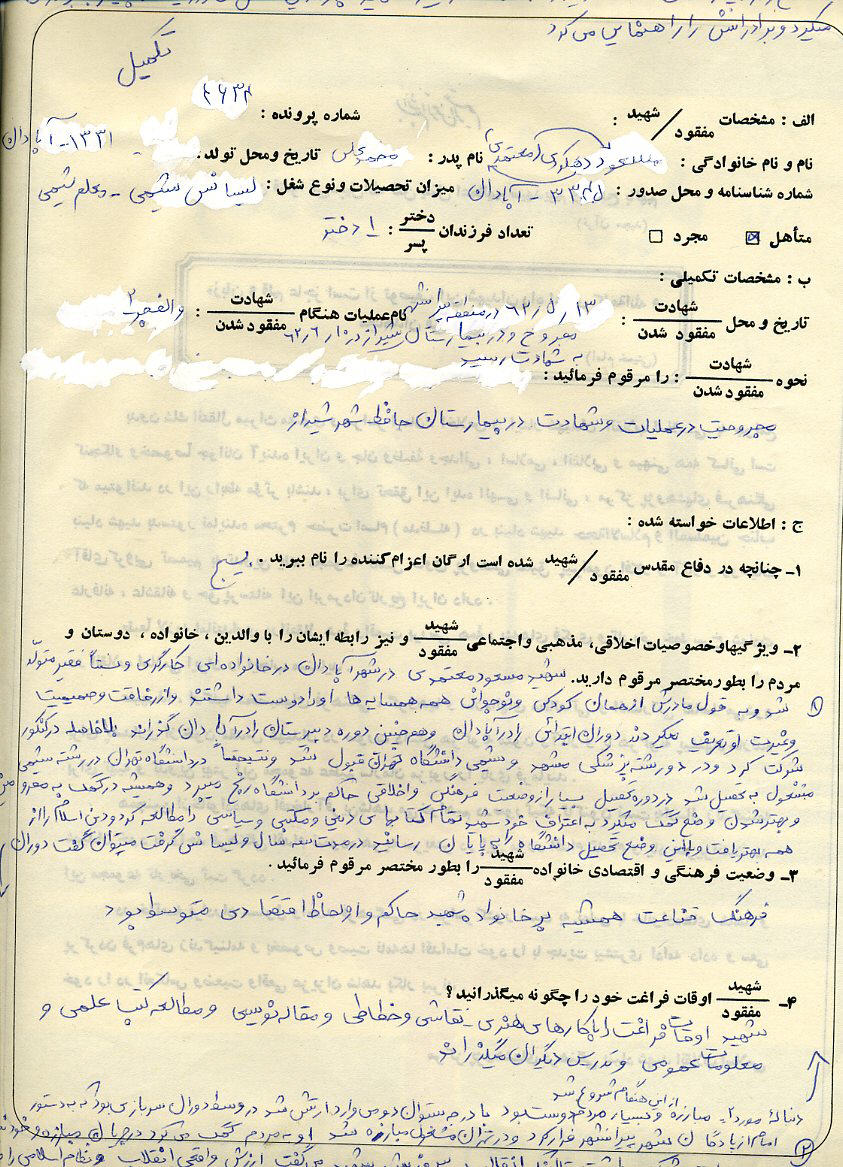 میگیرد و برادرانش را راهنمایی می کرد
تکمیل
الف : مشخصات شهید / مفقود :
شماره پرونده : ۲۶۳۴
نام و نام خانوادگی : مسعود دهکردی (معتمدی) نام پدر : محمدعلی تاریخ ومحل تولد : ۱۳۳۱ - آبادان
شماره شناسنامه و محل صدور : ۳۳۴۵ - آبادان میزان تحصیلات ونوع شغل : لیسانس شیمی - معلم شیمی
متأهل ☒ مجرد ☐ تعداد فرزندان دختر / پسر : ۱ دختر
ب : مشخصات تکمیلی :
تاریخ و محل شهادت / مفقود شدن : ۶۲/۵/۱۳ در منطقه پیرانشهر نام عملیات هنگام شهادت / مفقود شدن : والفجر ۲
مجروح و در بیمارستان شیراز در ۶۲/۶
به شهادت رسید
نحوه شهادت / مفقود شدن : را مرقوم فرمائید :
مجروحیت در عملیات و شهادت در بیمارستان حافظ شهر شیراز
ج : اطلاعات خواسته شده :
۱- چنانچه در دفاع مقدس شهید / مفقود شده است ارگان اعزام کننده را نام ببرید . بسیج
۲- ویژگیهاوخصوصیات اخلاقی، مذهبی واجتماعی شهید / مفقود و نیز رابطه ایشان را با والدین ، خانواده ، دوستان و
مردم را بطور مختصر مرقوم دارید. شهید مسعود معتمدی در شهر آبادان در خانواده ای کارگری و نسبتاً فقیر متولد
شد و به قول مادرش از همان کودکی و نوجوانی همه همسایه ها او را دوست داشتند و از رفاقت و صمیمیت
و غیرت او تعریف میکردند دوران ابتدائی را در آبادان و همچنین دوره دبیرستان را در آبادان گذراند بلافاصله در کنکور
شرکت کرد و در دو رشته پزشکی مشهد و شیمی دانشگاه تهران قبول شد و نتیجتاً در دانشگاه تهران در رشته شیمی
مشغول به تحصیل شد در دوره تحصیل بسیار از وضعیت فرهنگی و اخلاقی حاکم بر دانشگاه رنج میبرد و همیشه در کمک به
و بهتر شدن وضع کمک میکرد به اعتراف خود شهید تمام کتابهای دینی و مکتبی و سیاسی را مطالعه کرد و دین اسلام را از
همه بهتر یافت و با این وضع تحصیل دانشگاه را به پایان رسانید در مدت سه سال و لیسانس گرفت میتوان گفت دوران
۳- وضعیت فرهنگی و اقتصادی خانواده شهید / مفقود را بطور مختصر مرقوم فرمائید .
فرهنگ قناعت همیشه بر خانواده شهید حاکم و از لحاظ اقتصادی متوسط بود
۴- شهید / مفقود اوقات فراغت خود را چگونه میگذرانید؟
شهید اوقات فراغت را با کارهای هنری - نقاشی و خطاطی و مقاله نویسی و مطالعه کتب علمی و
معلومات عمومی و تدریس دیگران میگذراند
از این هنگام شروع شد
دنباله مورد ۲- مبارزه و بسیار مردم دوست بود با درجه ستوان دومی وارد ارتش شد در وسط دوران سربازی بود که به دستور
امام از پادگان شهر پیرانشهر فرار کرد و در تهران مشغول مبارزه شد او به مردم کمک می کرد در جریان مبارزه و خود